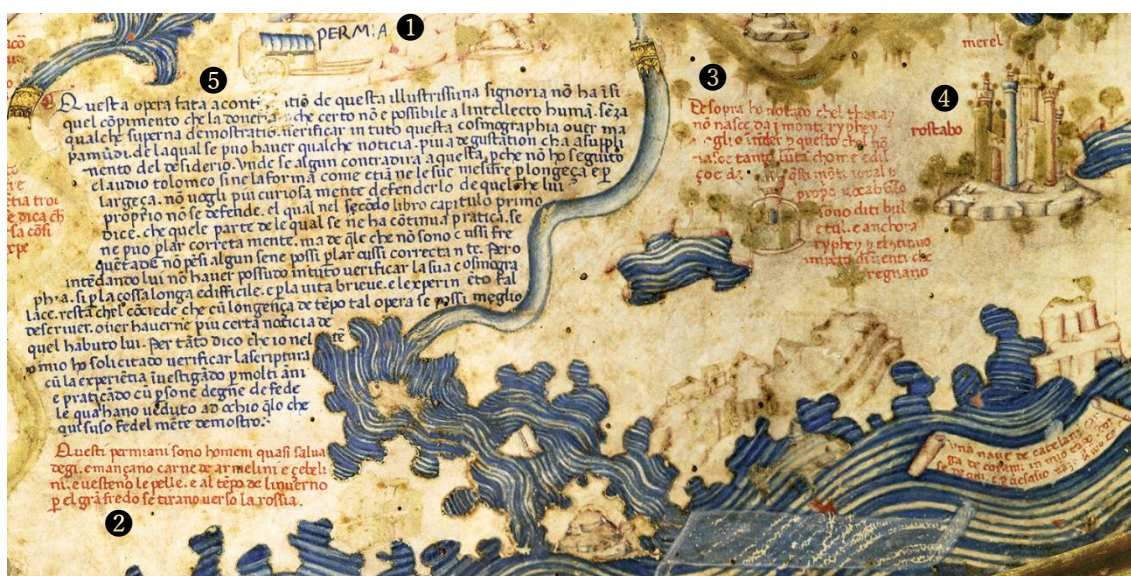 PERMIA
1
5
Questa opera fata a contẽ tiõ de questa illustrissima signoria nõ ha ĩ si
quel cõpimento che la doveria che certo nõ e possibile a lintellecto humã. sẽza
qualche superna demostratiõ. verificar in tuto questa cosmographia over ma
pamũdi. de la qual se puo haver qualche noticia. piu a degustation cha a suppli
mento del desiderio. Vnde se algun contradira a questa. pche nõ ho seguito
claudio tolomeo sine la forma come etiã ne le sue mesure p longeça. e p
largeça. nõ vogli piu curiosa mente defenderlo de quel che lui
proprio nõ se defende. el qual nel secõdo libro capitulo primo
dice. che quele parte de le qual se ne ha cõtinua pratica. se
ne puo plar correta mente. ma de q̃le che nõ sono cussi fre
quẽtade nõ pẽsi algun sene possi plar cussi correcta n te. Pero
intẽdando lui nõ haver possudo in tuto verificar la sua cosmogra
phia. si p la cossa longa e difficile. e p la vita brieve. e lexperimẽto fal
lace. resta chel cõciede che cũ longeça de tẽpo tal opera se possi meglio
descriver. over haverne piu certa noticia de
quel habuto lui. Per tãto dico che io nel tẽ
po mio ho solicitado verificar la scriptura
cũ la experiẽtia ĩvestigãdo p molti ãni
e praticãdo cũ p̃sone degne de fede
le qual hano veduto ad ochio q̃lo che
qui suso fedel mẽte demostro.
Questi permiani sono homeni quasi salva
degi. e mançano carne de armelini e çebeli
ni. e vesteno le pelle. e al tẽpo de linverno
p el grã fredo se tirano verso la rossia.
2
3
De sopra ho notado chel thanay
nõ nasce da i monti ryphey
nasce tanto
proprio vocabulo
sono diti bul
e tul. e anchora
ryphey
impeto di venti che
regnano
4
merel
rostabo
Una nave de catelani
ga de corami. in mio